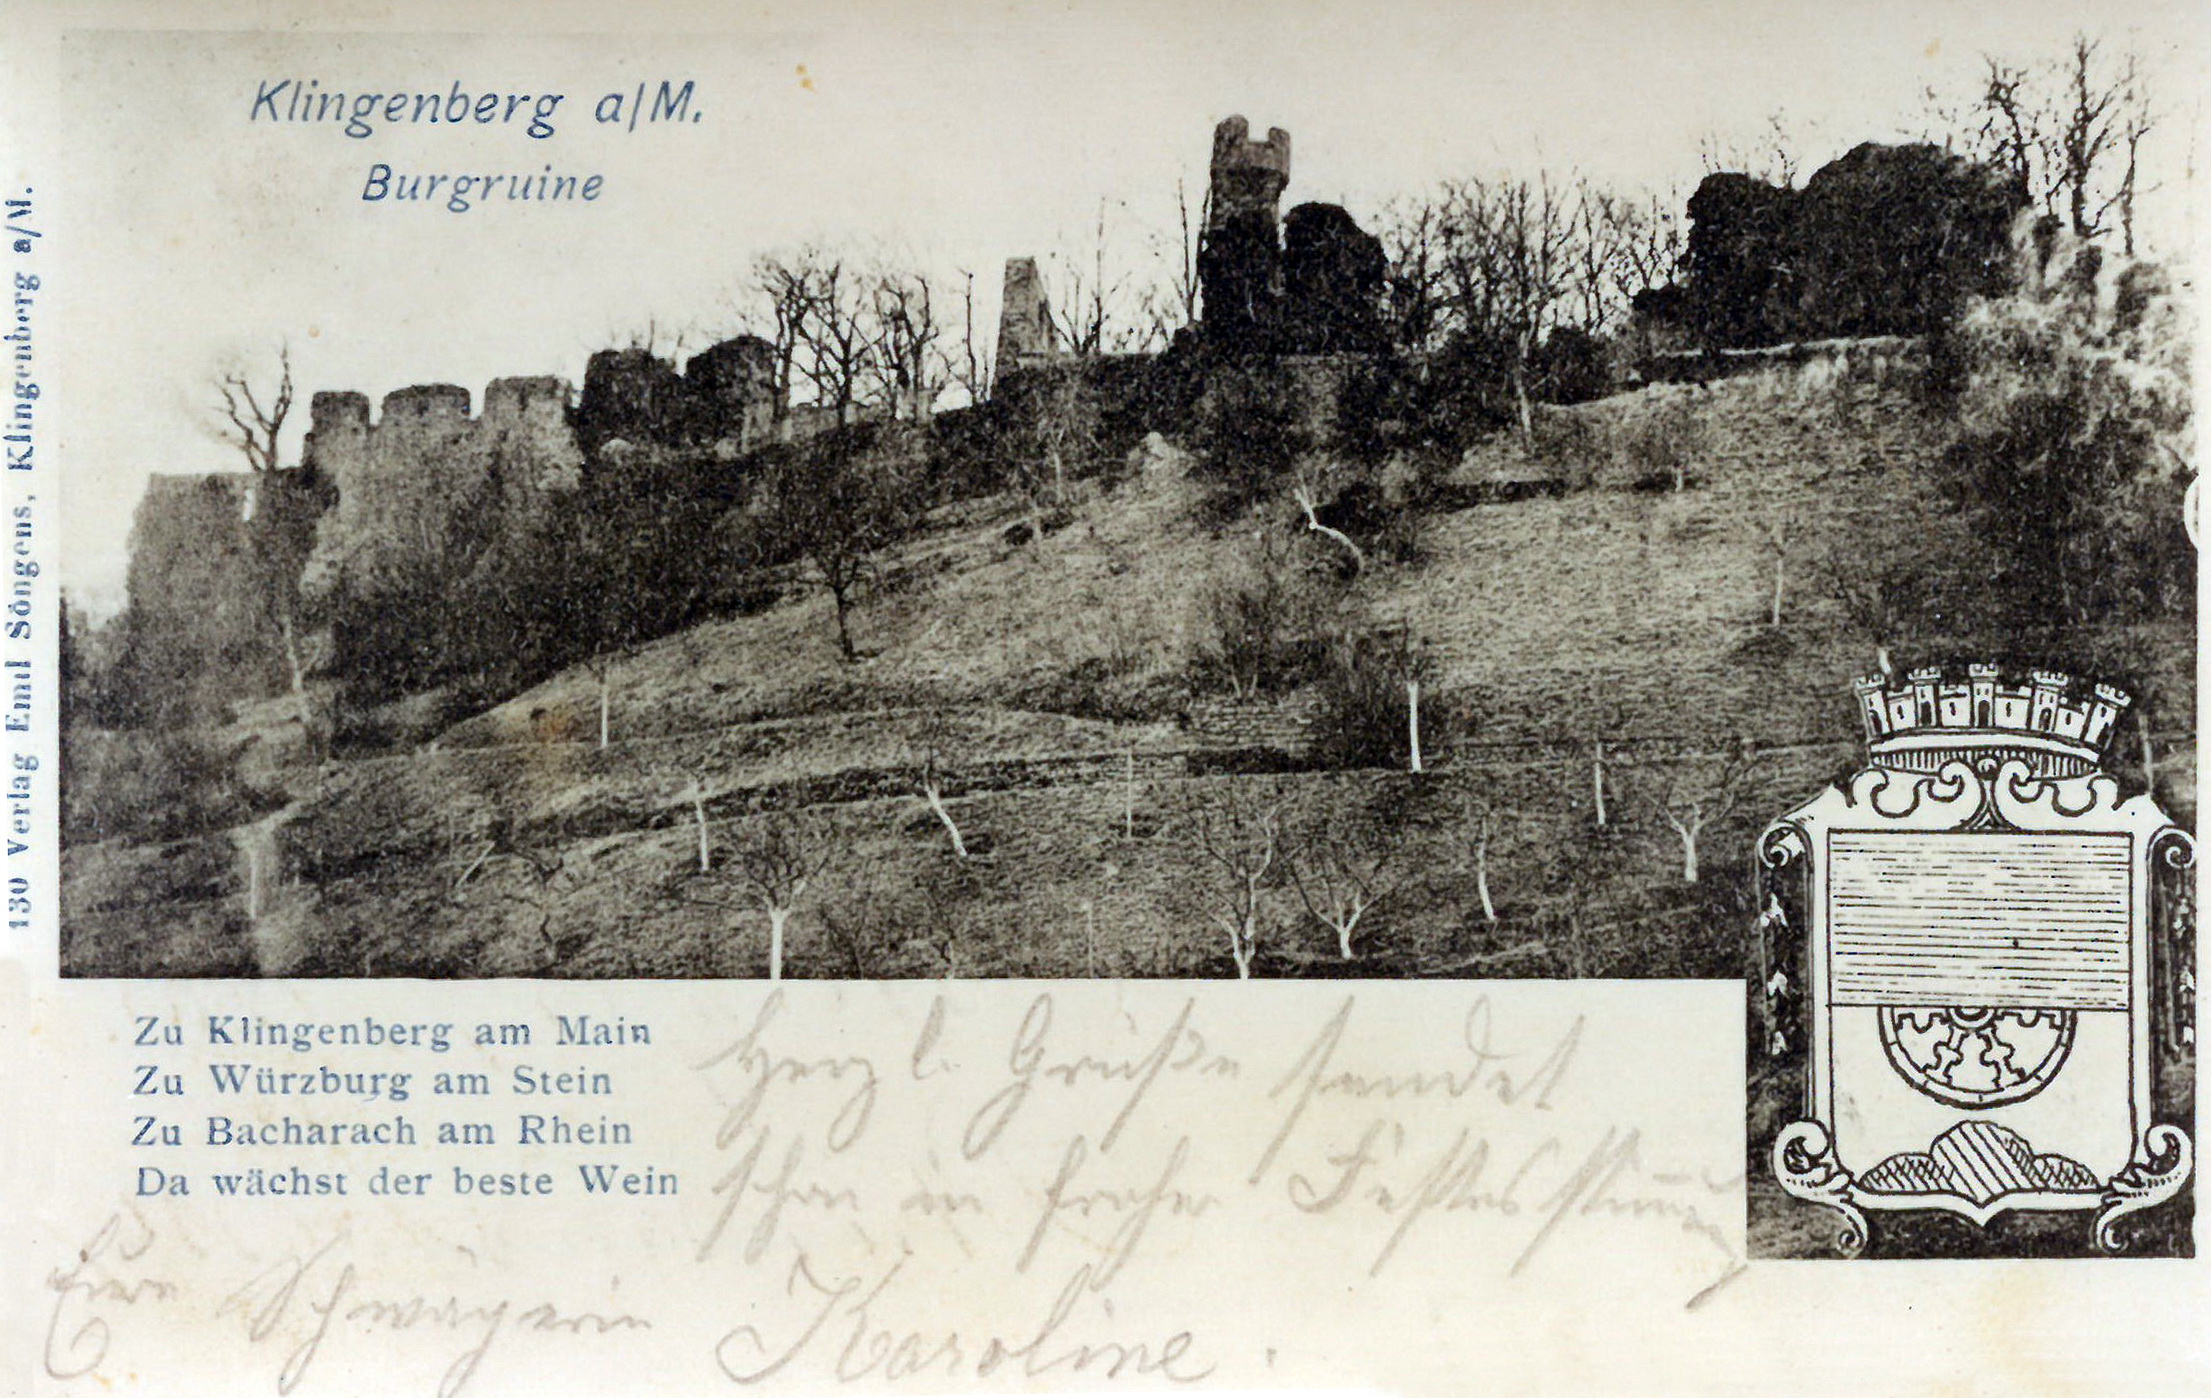 Klingenberg a/M.
Burgruine
130 Verlag Emil Söngens, Klingenberg a/M.
Zu Klingenberg am Main
Zu Würzburg am Stein
Zu Bacharach am Rhein
Da wächst der beste Wein
Herzl. Grüße sendet
schon in froher Festesstimmung
Eure Schwägerin Karoline.